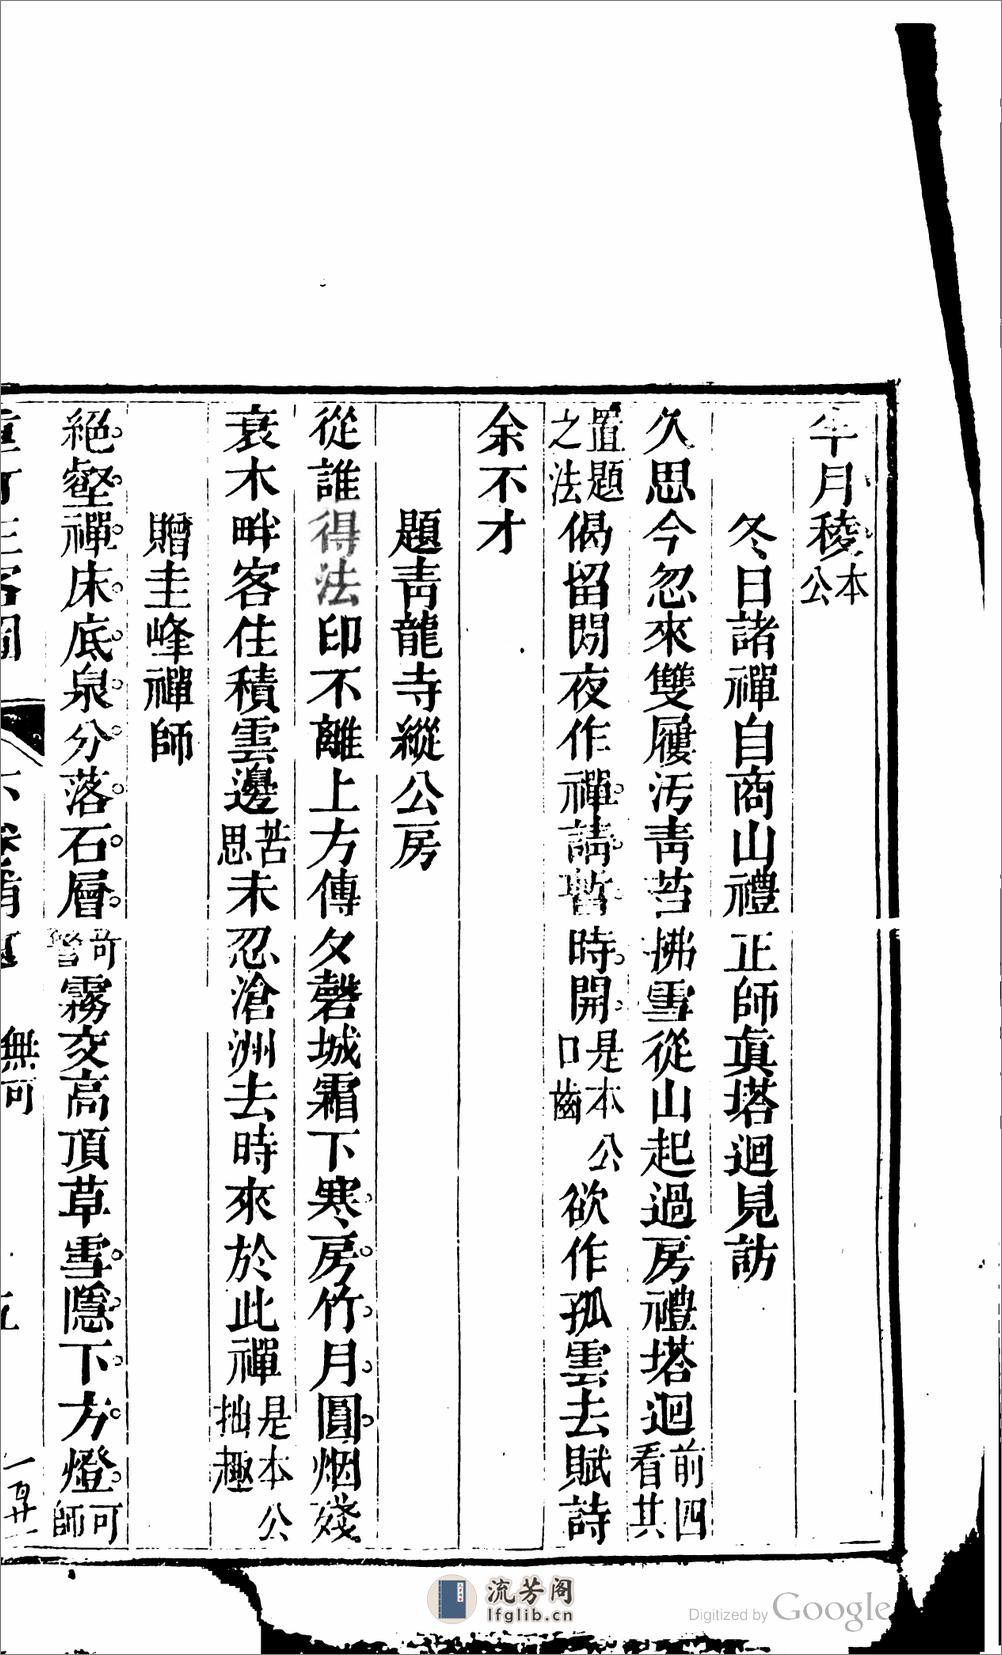 年月稜本公
冬日諸禪自商山禮正師眞塔迴見訪
久思今忽來雙屨汚靑苔拂雪從山起過房禮塔迴前四看其
置題之法偈留閒夜作禪請暫時開是本公口齒欲作孤雲去賦詩
余不才
題靑龍寺縱公房
從誰得法印不離上方傳夕磬城霜下寒房竹月圓烟殘
衰木畔客住積雲邊苦思未忍滄洲去時來於此禪是本公拙趣
贈圭峰禪師
絕壑禪床底泉分落石層可霧交高頂草雪隱下方燈可師
重訂主客圖
無可
流芳阁
lfglib.cn
Digitized by Google